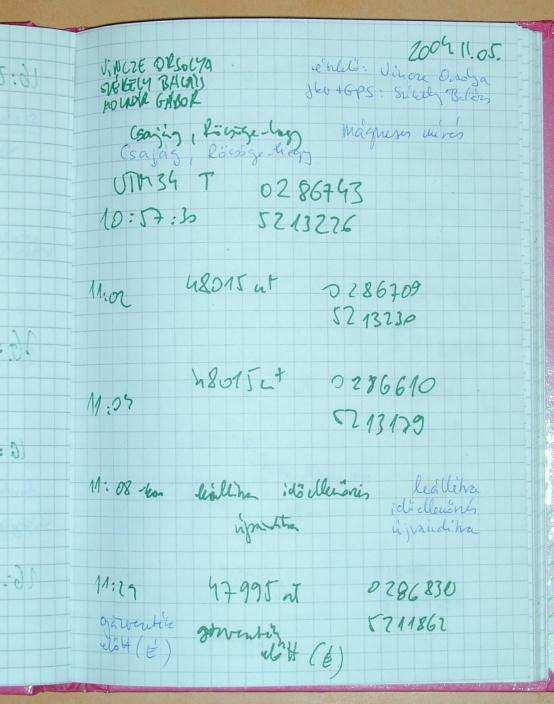 2004.11.05.
VINCZE ORSOLYA
SZÉKELY BALÁZS
MOLNÁR GÁBOR
észlelő: Vincze Orsolya
jkv+GPS: Székely Balázs
Csajág, Röcsöge-hegy mágneses mérés
Csajág, Röcsöge-hegy
UTM34 T 0286743
10:57:30 5213226
11:02 48015 nT 0286709
5213230
48015 nT 0286610
11:04
5213179
11:08-kor leállítva időellenőrzés leállítva
időellenőrzés
újraindítva újraindítva
11:29 47995 nT 0286830
5211862
előtt (É) előtt (É)